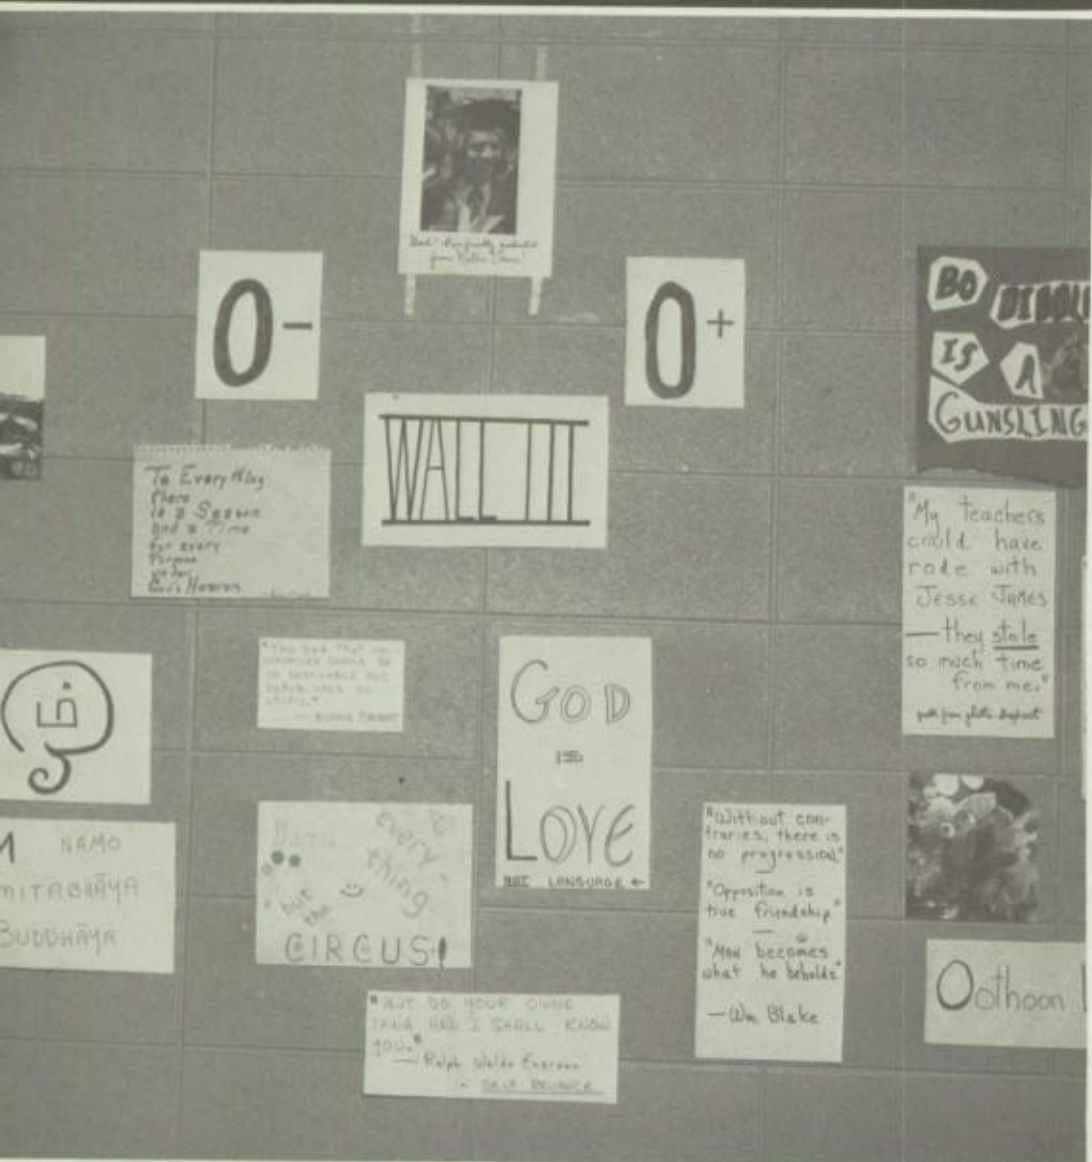 from
O-
O+
BO
IS A
GUNSLING
WALL III
To Everything
there
is a Season
and a Time
for every
"My teachers
could have
rode with
Jesse James
—they stole
so much time
from me."
GOD
is
LOVE
NOT LANGUAGE ←
NAMO
MITABHĀYA
BUDDHĀYA
every-
thing
but
the
CIRCUS!
"Without con-
traries, there is
no progression"
"Opposition is
true friendship"
"Man becomes
what he beholds"
—Wm Blake
Oothoon
"BUT DO YOUR OWNE
THING AND I SHALL KNOW
YOU."
— Ralph Waldo Emerson
- SELF RELIANCE